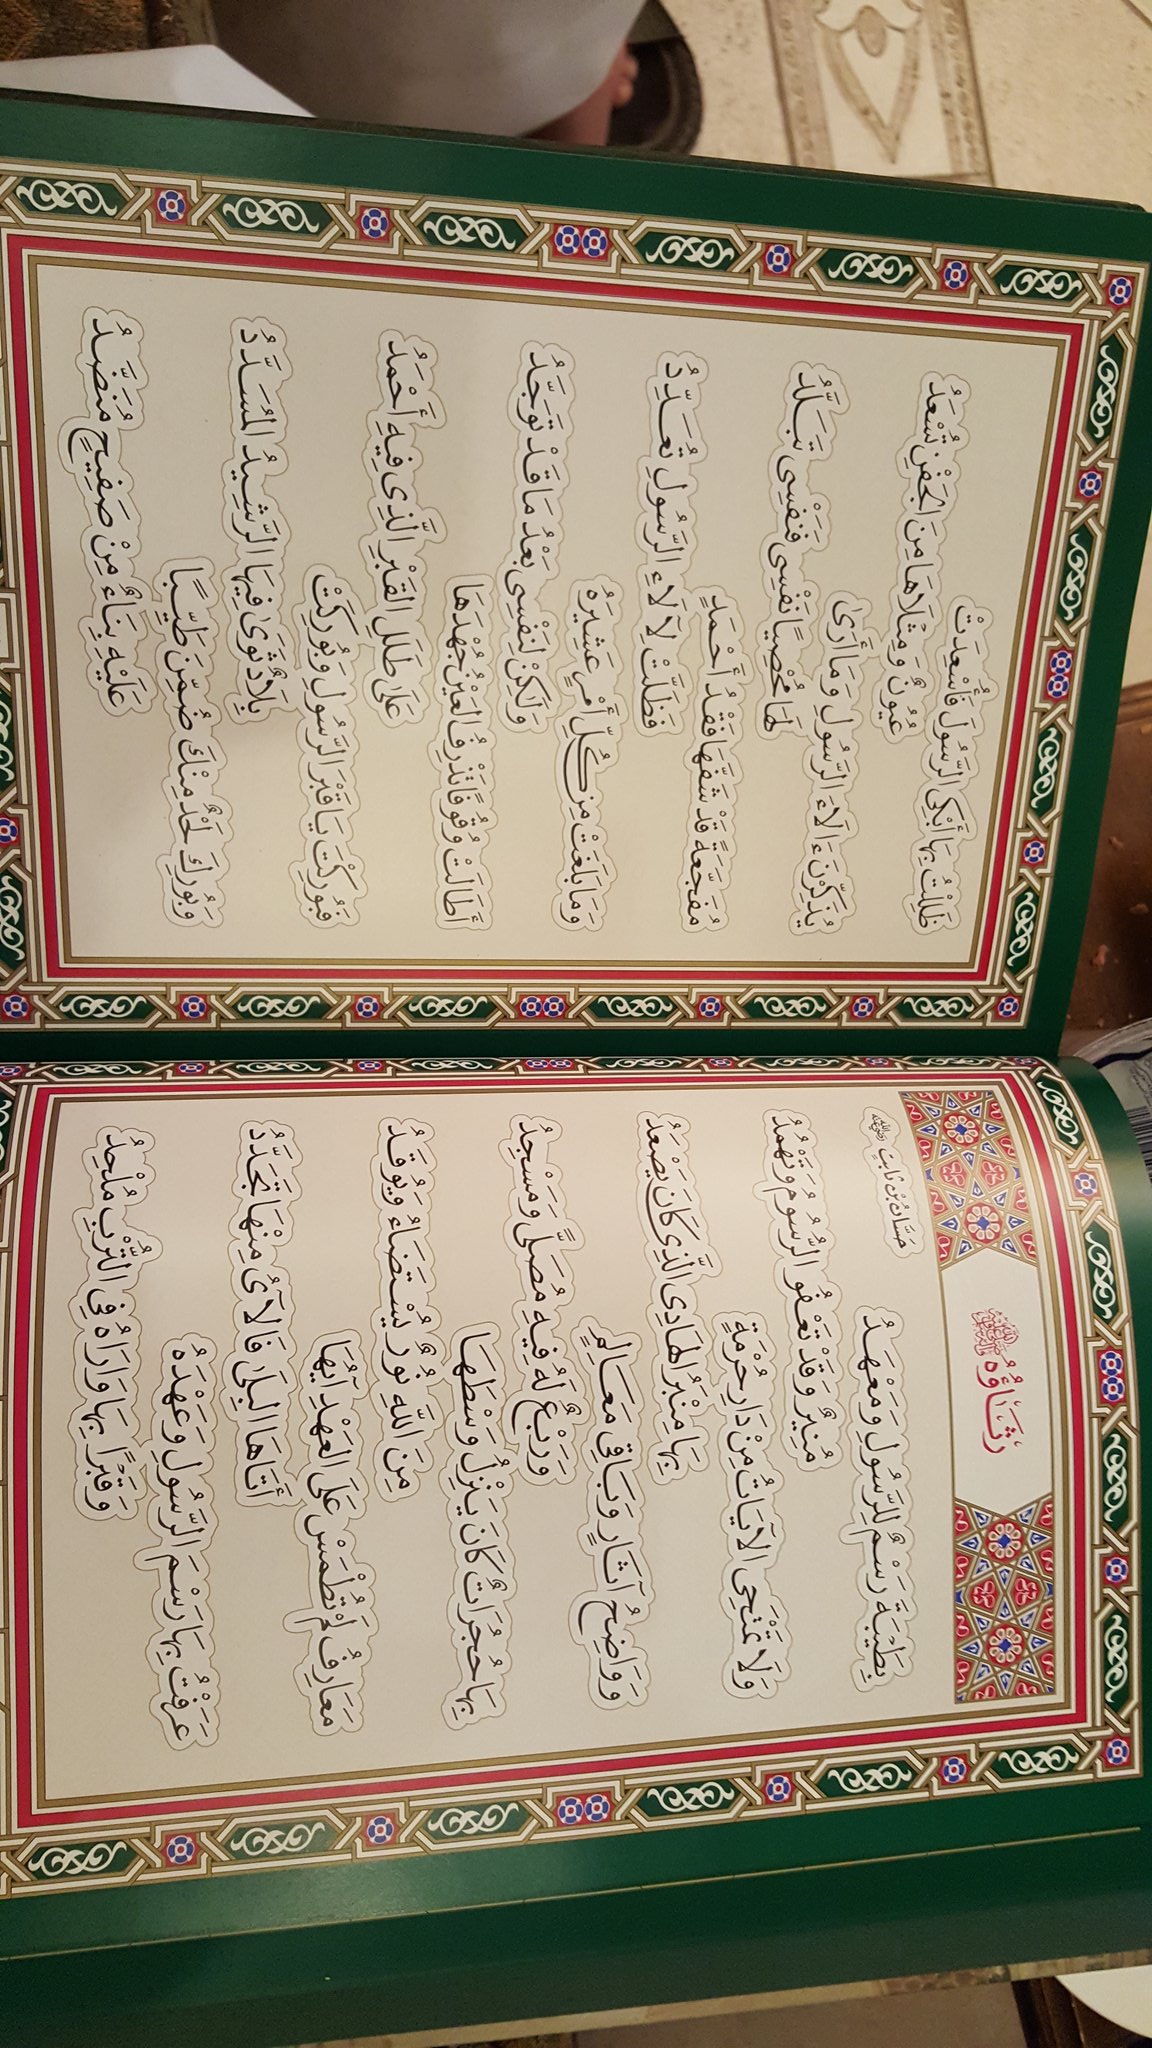 رِثَاؤُهُ ﷺ
حَسَّانُ بْنُ ثَابِتٍ رضي الله عنه
بِطَيْبَةَ رَسْمٌ لِلرَّسُولِ وَمَعْهَدُ
مُنِيرٌ وَقَدْ تَعْفُو الرُّسُومُ وَتَهْمُدُ
وَلَا تَمْتَحِى الْآيَاتُ مِنْ دَارِ حُرْمَةٍ
بِهَا مِنْبَرُ الْهَادِى الَّذِى كَانَ يَصْعَدُ
وَوَاضِحُ آثَارٍ وَبَاقِى مَعَالِمٍ
وَرَبْعٌ لَهُ فِيهِ مُصَلًّى وَمَسْجِدُ
بِهَا حُجُرَاتٌ كَانَ يَنْزِلُ وَسْطَهَا
مِنَ اللَّهِ نُورٌ يُسْتَضَاءُ وَيُوقَدُ
مَعَارِفُ لَمْ تُطْمَسْ عَلَى الْعَهْدِ آيُهَا
أَتَاهَا الْبِلَى فَالْآىُ مِنْهَا تَجَدَّدُ
عَرَفْتُ بِهَا رَسْمَ الرَّسُولِ وَعَهْدَهُ
وَقَبْرًا بِهَا وَارَاهُ فِى التُّرْبِ مُلْحِدُ
ظَلِلْتُ بِهَا أَبْكِى الرَّسُولَ فَأَسْعَدَتْ
عُيُونٌ وَمِثْلَاهَا مِنَ الْجَفْنِ تُسْعَدُ
يُذَكِّرْنَ آلَاءَ الرَّسُولِ وَمَا أَرَىٰ
لَهَا مُحْصِيًا نَفْسِى فَنَفْسِى تَبَلَّدُ
مُفَجَّعَةً قَدْ شَفَّهَا فَقْدُ أَحْمَدٍ
فَظَلَّتْ لِآلَاءِ الرَّسُولِ تُعَدِّدُ
وَمَا بَلَغَتْ مِنْ كُلِّ أَمْرٍ عَشِيرَهُ
وَلَكِنْ لِنَفْسِى بَعْدُ مَا قَدْ تَوَجَّدُ
أَطَالَتْ وُقُوفًا تَذْرِفُ الْعَيْنُ جُهْدَهَا
عَلَىٰ طَلَلِ الْقَبْرِ الَّذِى فِيهِ أَحْمَدُ
فَبُورِكْتَ يَا قَبْرَ الرَّسُولِ وَبُورِكَتْ
بِلَادٌ ثَوَىٰ فِيهَا الرَّشِيدُ الْمُسَدَّدُ
وَبُورِكَ لَحْدٌ مِنْكَ ضُمِّنَ طَيِّبًا
عَلَيْهِ بِنَاءٌ مِنْ صَفِيحٍ مُنَضَّدُ